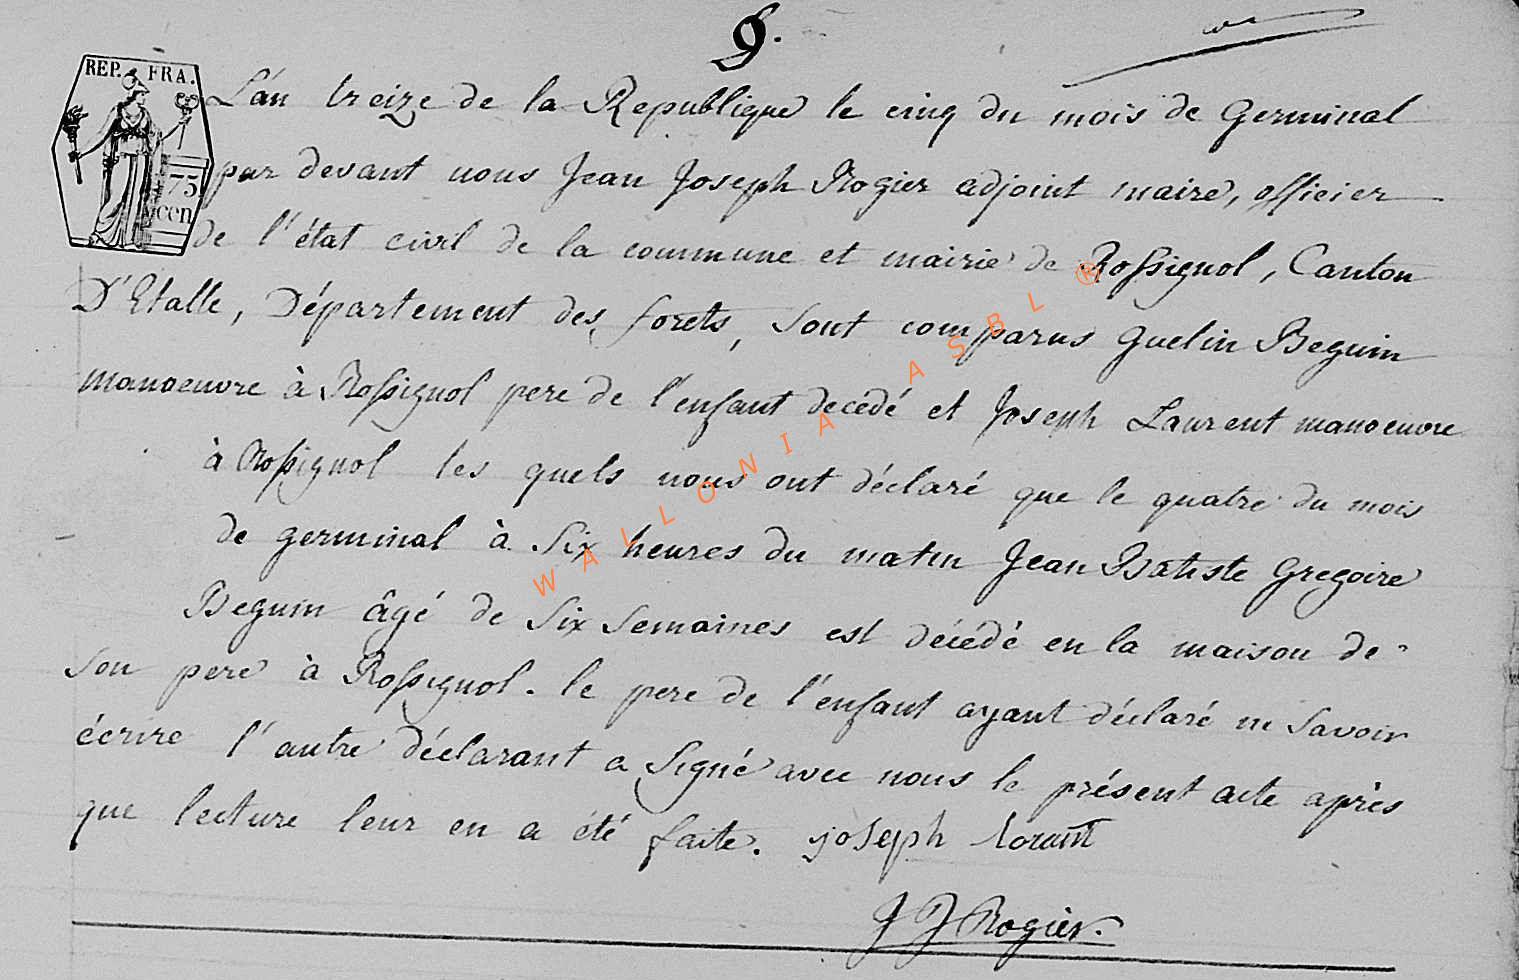 9.
REP. FRA.
75
cen
L'án treize de la Republique le cinq du mois de Germinal
par devant nous Jean Joseph Rogier adjoint maire, officier
de l'état civil de la commune et mairie de Rossignol, Canton
D'Etalle, Département des forêts, sont comparus Guelin Beguin
manoeuvre à Rossignol pere de l'enfant decedé et Joseph Laurent manoeuvre
à Rossignol les quels nous ont déclaré que le quatre du mois
de germinal à Six heures du matin Jean Batiste Gregoire
Beguin âgé de Six Semaines est décédé en la maison de
Son pere à Rossignol. le pere de l'enfant ayant déclaré ne Savoir
écrire l'autre déclarant a Signé avec nous le présent acte après
que lecture leur en a été faite. joseph lorant
J J Rogier.
WALLONIA ASBL ®